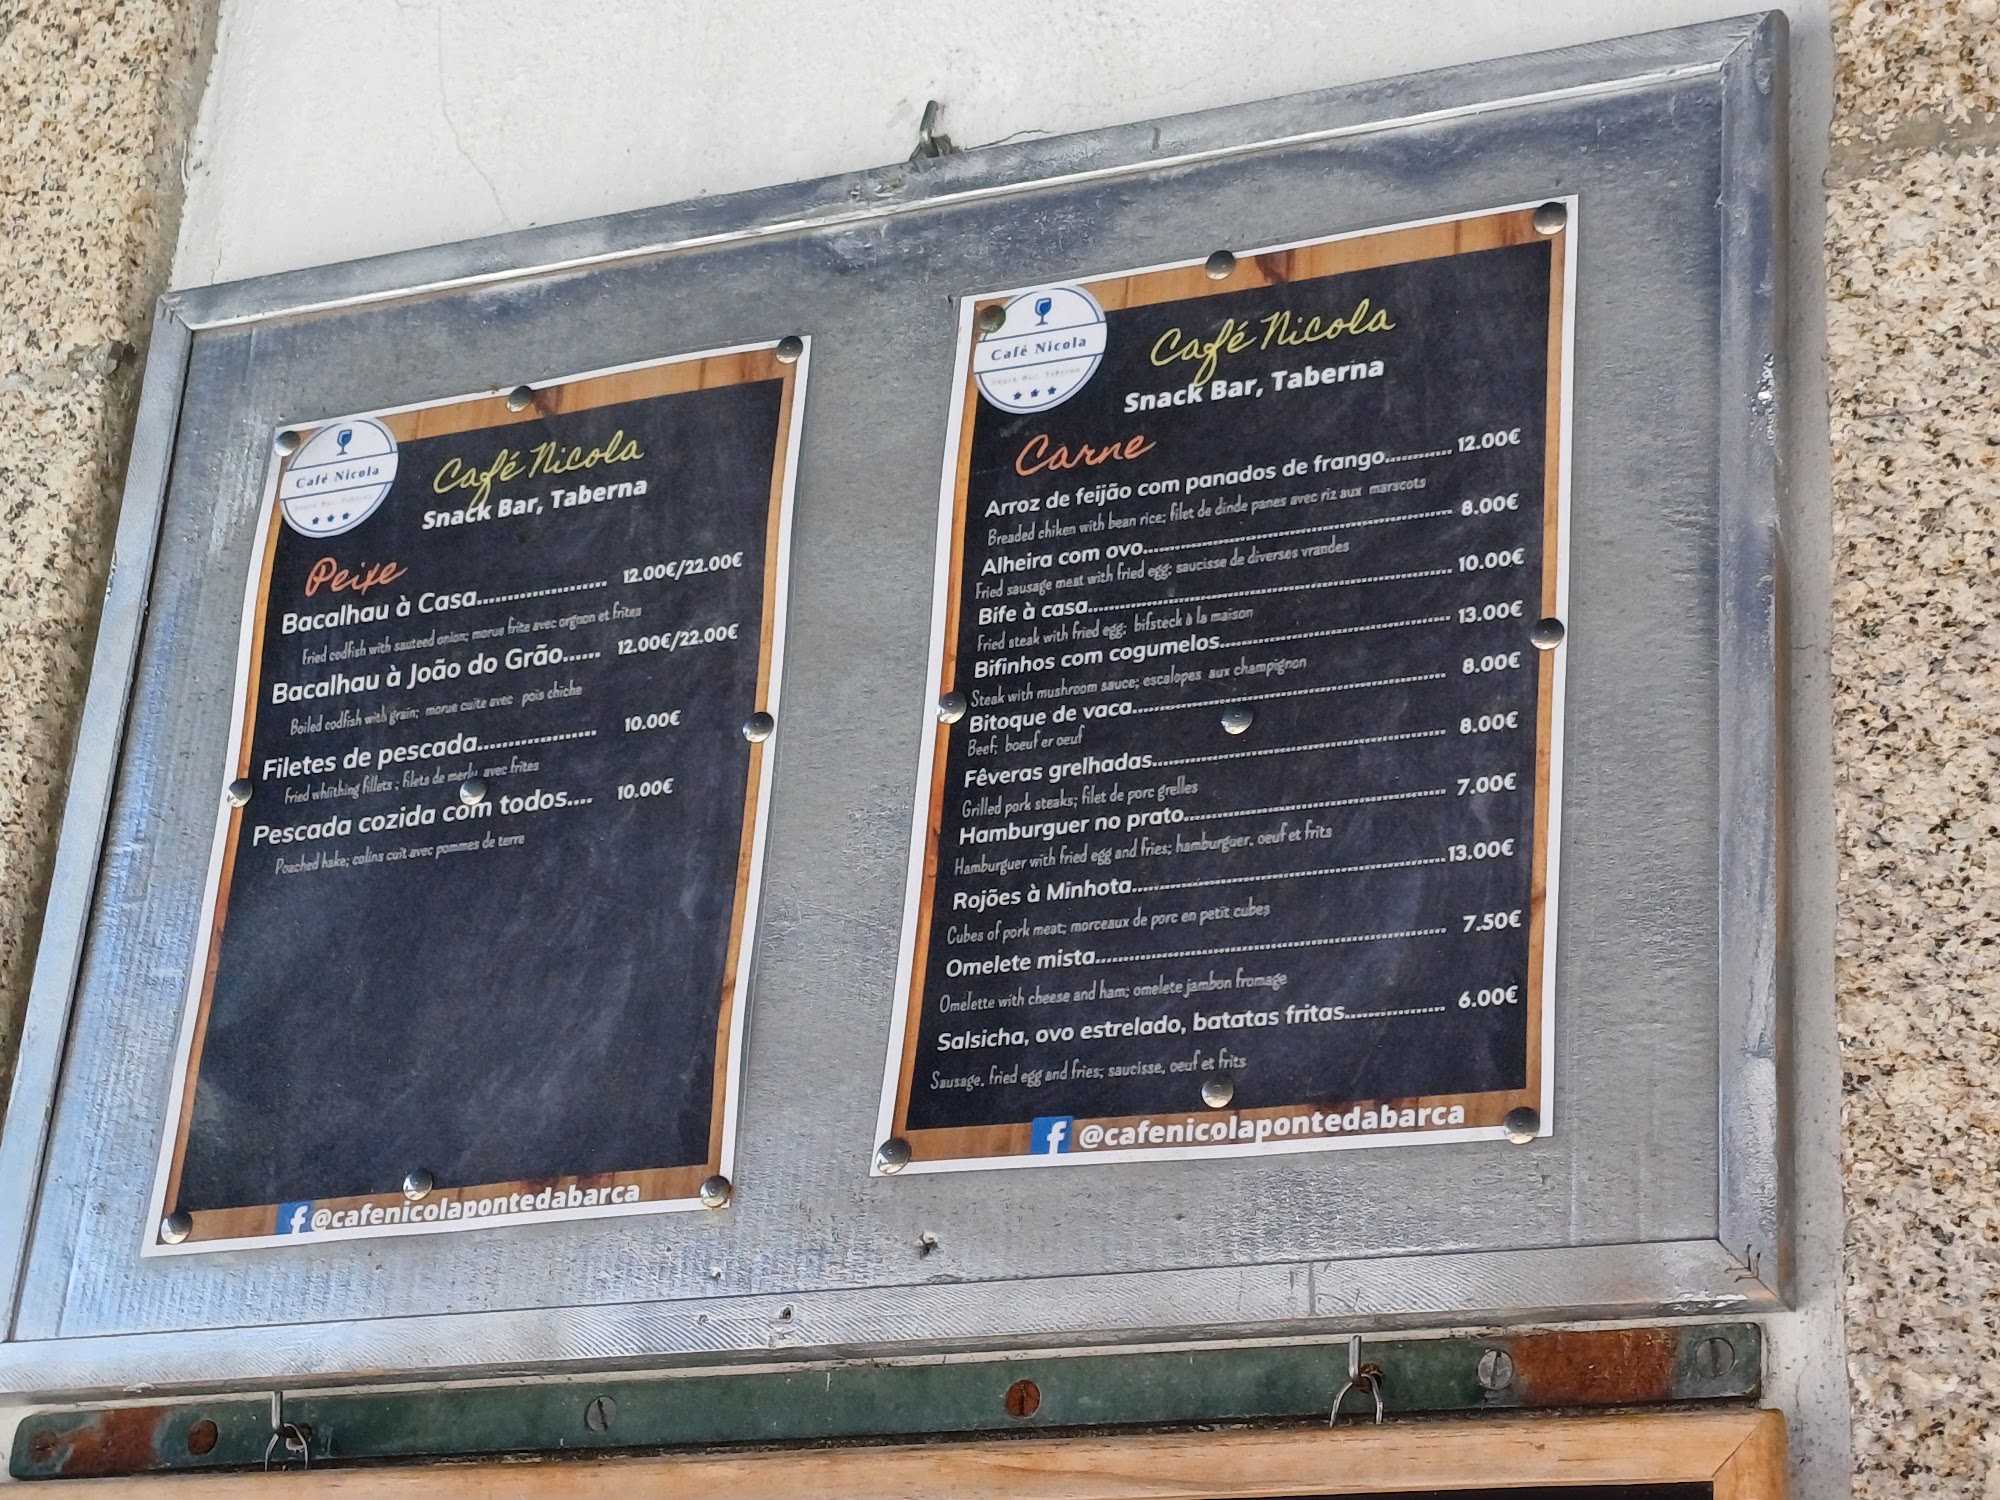 Café Nicola
Snack Bar, Taberna
Café Nicola
Snack Bar, Taberna
Peixe
Bacalhau à Casa...................... 12.00€/22.00€
Fried codfish with sauteed onion; morue frite avec orgnon et frites
Bacalhau à João do Grão...... 12.00€/22.00€
Boiled codfish with grain; morue cuite avec pois chiche
Filetes de pescada................... 10.00€
Fried whiithing fillets ; filets de merlu avec frites
Pescada cozida com todos.... 10.00€
Poached hake; colins cuit avec pommes de terre
@cafenicolapontedabarca
Café Nicola
Snack Bar, Taberna
Café Nicola
Snack Bar, Taberna
Carne
Arroz de feijão com panados de frango........... 12.00€
Breaded chiken with bean rice; filet de dinde panes avec riz aux marscots
Alheira com ovo.................................................... 8.00€
Fried sausage meat with fried egg; saucisse de diverses vrandes
Bife à casa.............................................................. 10.00€
Fried steak with fried egg; bifsteck à la maison
Bifinhos com cogumelos....................................... 13.00€
Steak with mushroom sauce; escalopes aux champignon
Bitoque de vaca..................................................... 8.00€
Beef; boeuf er oeuf
Fêveras grelhadas................................................. 8.00€
Grilled pork steaks; filet de porc grelles
Hamburguer no prato............................................ 7.00€
Hamburguer with fried egg and fries; hamburguer, oeuf et frits
Rojões à Minhota.....................................................13.00€
Cubes of pork meat; morceaux de porc en petit cubes
Omelete mista......................................................... 7.50€
Omelette with cheese and ham; omelete jambon fromage
Salsicha, ovo estrelado, batatas fritas................ 6.00€
Sausage, fried egg and fries; saucisse, oeuf et frits
@cafenicolapontedabarca